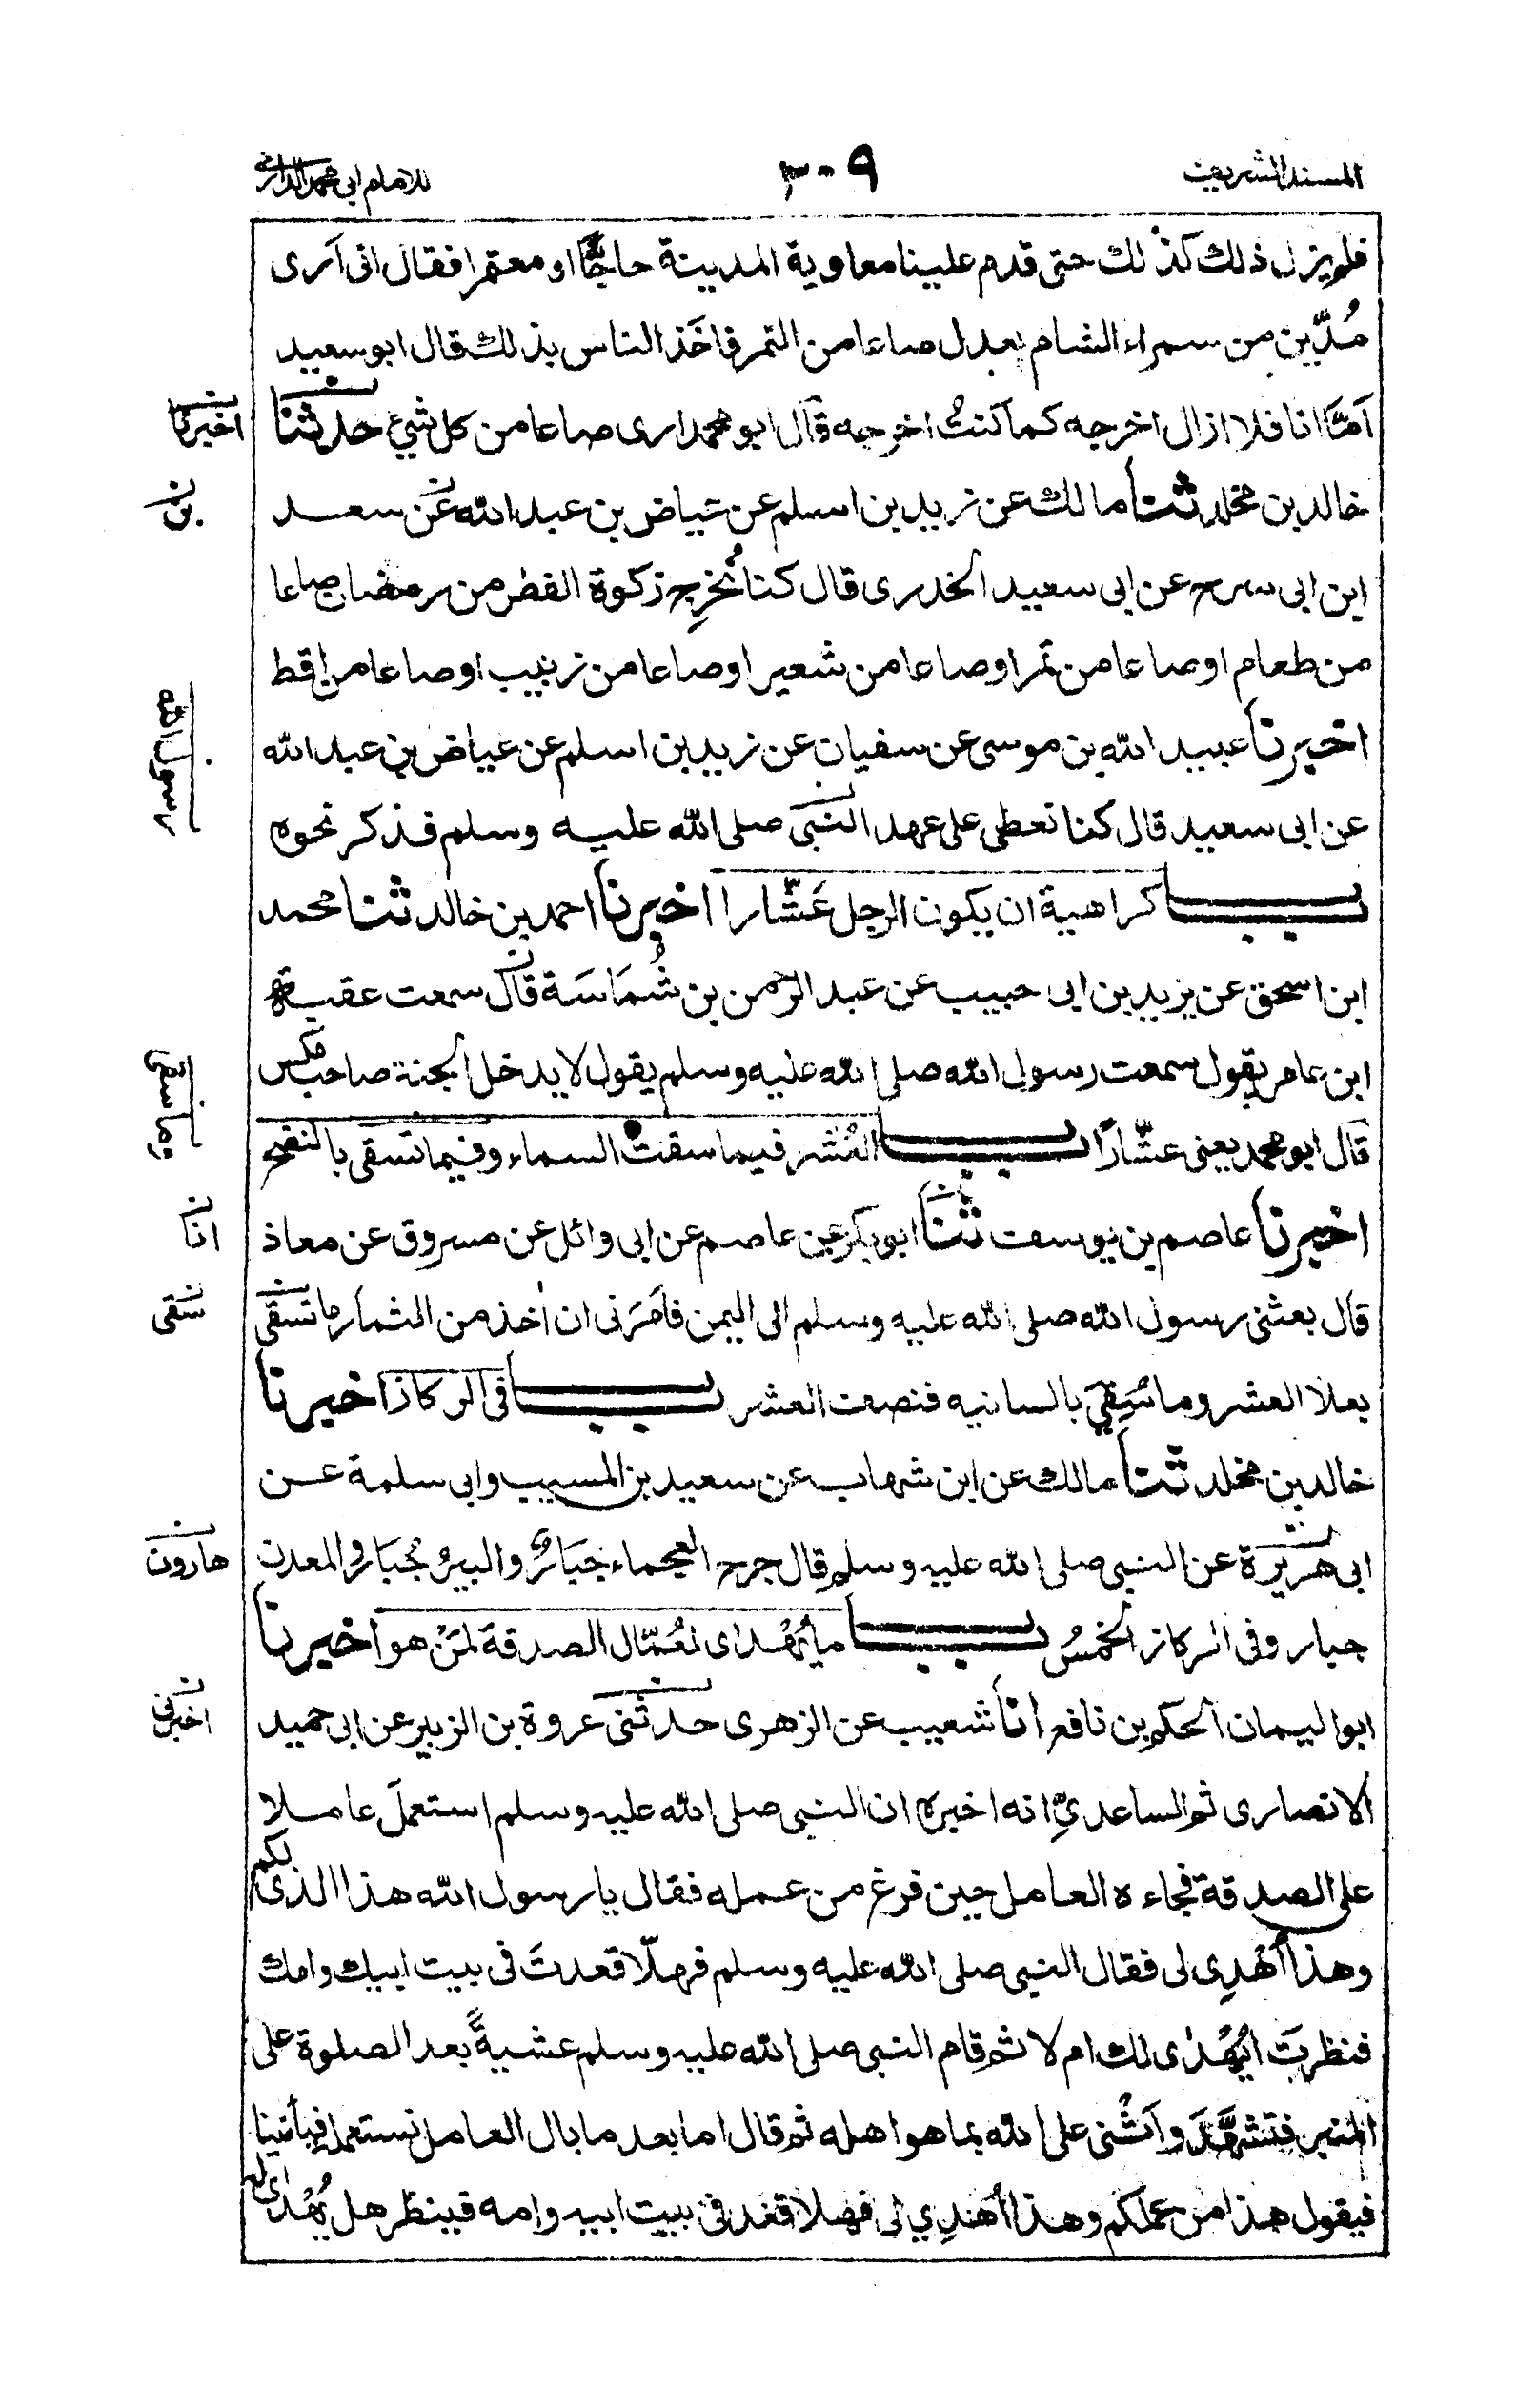 المسند الشريف ٢٠٩ للامام ابى محمد الدارمى
فلم يزل ذلك كذلك حتى قدم علينا معاوية المدينة حاجًّا او معتمرا فقال انى اَرى
مُدّين من سمراء الشام يعدل صاعا من التمر فاخَذ الناس بذلك قال ابو سعيد
اَمَّا انا فلا ازال اخرجه كما كنتُ اخرجه قال ابو محمد ارى صاعا من كل شئ حدثنا
اخبرنا
خالد بن مخلد ثنا مالك عن زيد بن اسلم عن عياض بن عبد الله عن سعد
بن
ابن ابى سرح عن ابى سعيد الخدرى قال كنا نُخرِج زكوة الفطر من رمضان صاعا
من طعام او صاعا من تمر او صاعا من شعير او صاعا من زبيب او صاعا من اقط
اخبرنا عبيد الله بن موسى عن سفيان عن زيد بن اسلم عن عياض بن عبد الله
رسول الله
عن ابى سعيد قال كنا نعطى على عهد النبى صلى الله عليه وسلم فذكر نحوه
باب كراهية ان يكون الرجل عَشّارا اخبرنا احمد بن خالد ثنا محمد
ابن اسحق عن يزيد بن ابى حبيب عن عبد الرحمن بن شُمَاسَة قال سمعت عقبة
ابن عامر يقول سمعت رسول الله صلى الله عليه وسلم يقول لا يدخل الجنة صاحب مكس
وما سقى
قال ابو محمد يعنى عشّارًا باب العُشر فيما سقت السماء وفيما تسقى بالنضح
اخبرنا عاصم بن يوسف ثنا ابو بكر عن عاصم عن ابى وائل عن مسروق عن معاذ
انا
قال بعثنى رسول الله صلى الله عليه وسلم الى اليمن فاَمَرَنى ان اٰخذ من الثمار ما تسقى
سقى
بعلا العشر وما سُقِىَ بالسانيه فنصف العشر باب فى الركاز اخبرنا
خالد بن مخلد ثنا مالك عن ابن شهاب عن سعيد بن المسيب وابى سلمة عن
ابى هريرة عن النبى صلى الله عليه وسلم قال جرح العجماء جُبَارٌ والبيرُ جُبَار والمعدن
هارون
جبار وفى الركاز الخمسُ باب ما يُهْدٰى لعُمّال الصدقة لمَنْ هو اخبرنا
ابو اليمان الحكم بن نافع انا شعيب عن الزهرى حدثنى عروة بن الزبير عن ابى حميد
اخبرنى
الانصارى ثم الساعدىِّ انه اخبره ان النبى صلى الله عليه وسلم استعملَ عاملا
على الصدقة فجاءه العامل حين فرغ من عمله فقال يا رسول الله هذا الذى لكم
وهذا اُهْدِى لى فقال النبى صلى الله عليه وسلم فهلّا قعدتَ فى بيت ابيك وامك
فنظرتَ ايُهْدٰى لك ام لا ثم قام النبى صلى الله عليه وسلم عشيةً بعد الصلوة على
المنبر فتشهَّدَ واَثْنى على الله بما هو اهله ثم قال اما بعد ما بال العامل نستعمله فيأتينا
فيقول هذا من عملكم وهذا اُهْدِي لى فهلا قعد فى بيت ابيه وامه فينظر هل يُهْدٰى له